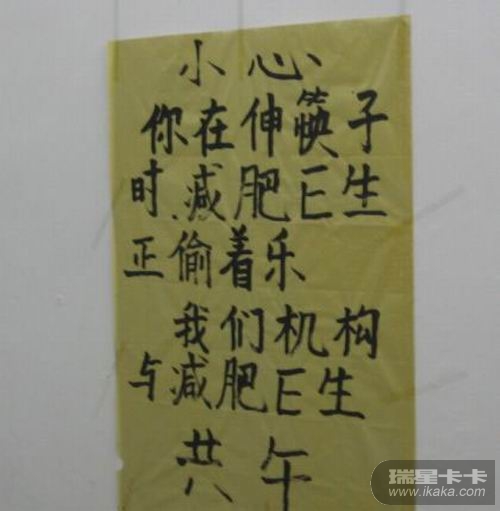 小心
你在伸筷子
时、减肥E生
正偷着乐
我们机构
与减肥E生
共午
瑞星卡卡
www.ikaka.com